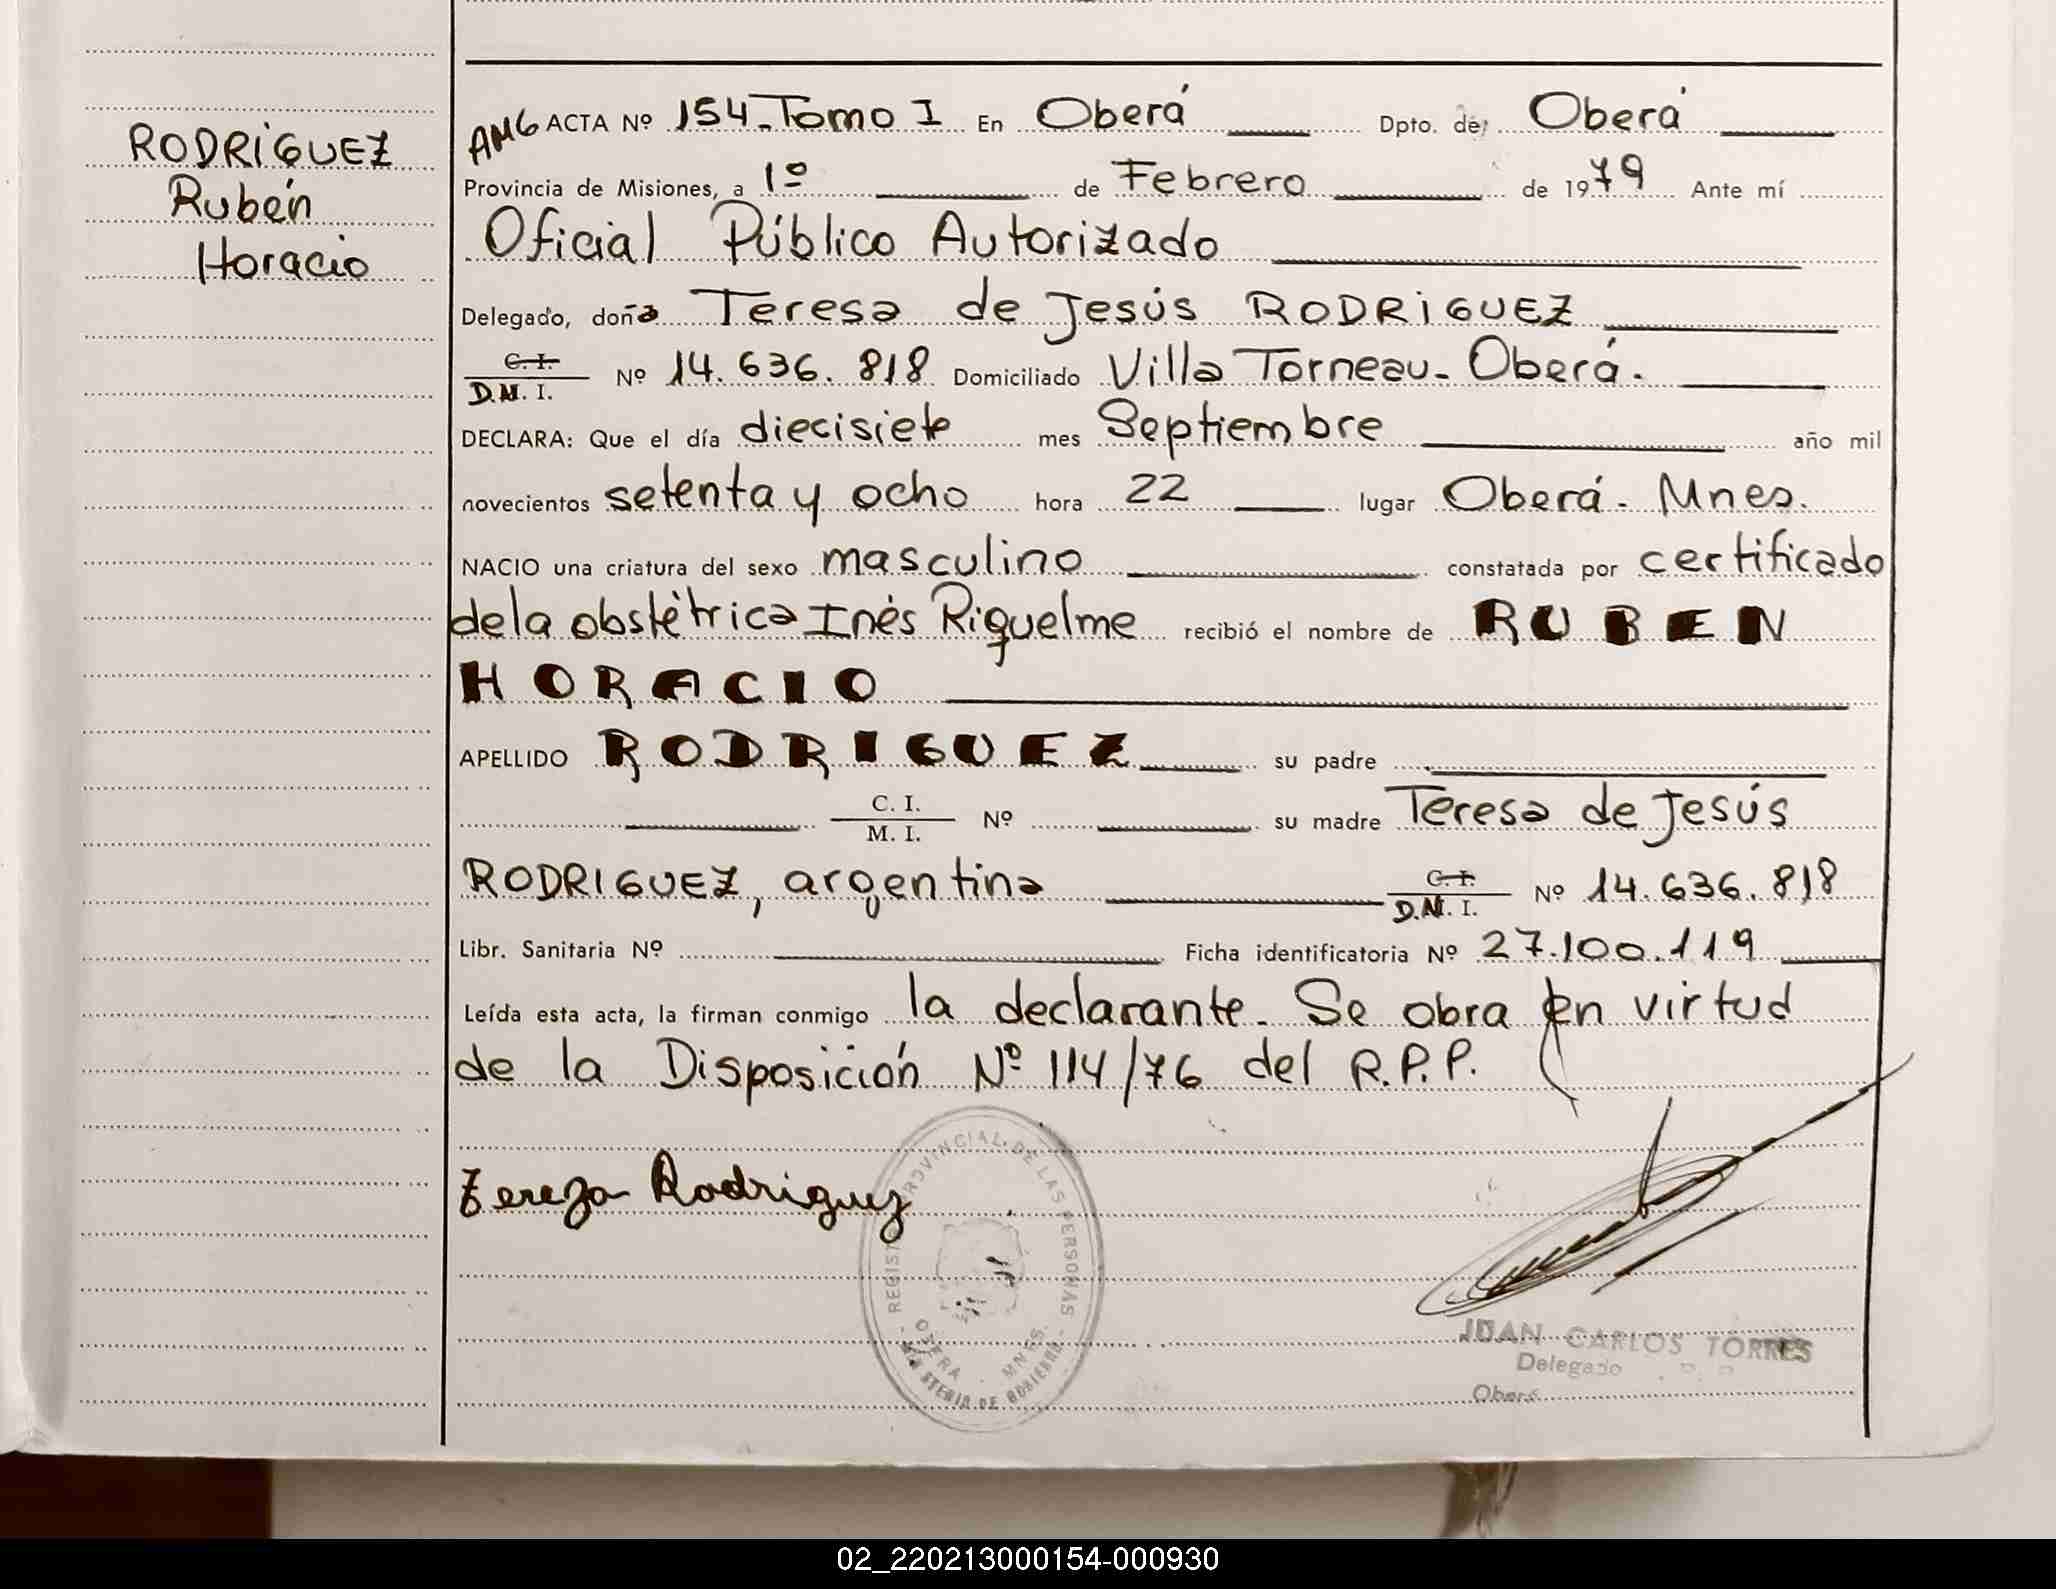 RODRIGUEZ
Rubén
Horacio
AMG ACTA Nº 154-Tomo I En Oberá Dpto. de Oberá
Provincia de Misiones, a 1º de Febrero de 1979 Ante mí
Oficial Público Autorizado
Delegado, doña Teresa de Jesús RODRIGUEZ
C. I.
D.N. I. Nº 14.636.818 Domiciliado Villa Torneau - Oberá.
DECLARA: Que el día diecisiete mes Septiembre año mil
novecientos setenta y ocho hora 22 lugar Oberá - Mnes.
NACIO una criatura del sexo masculino constatada por certificado
de la obstétrica Inés Riquelme recibió el nombre de RUBEN
HORACIO
APELLIDO RODRIGUEZ su padre
C. I.
M. I. Nº su madre Teresa de Jesús
RODRIGUEZ, argentina C. I.
D.N. I. Nº 14.636.818
Libr. Sanitaria Nº Ficha identificatoria Nº 27.100.119
Leída esta acta, la firman conmigo la declarante. Se obra en virtud
de la Disposición Nº 114/76 del R.P.P.
Tereza Rodriguez
REGISTRO PROVINCIAL DE LAS PERSONAS
OBERA - MNES.
MINISTERIO DE GOBIERNO
JUAN CARLOS TORRES
Delegado
Oberá
02_220213000154-000930